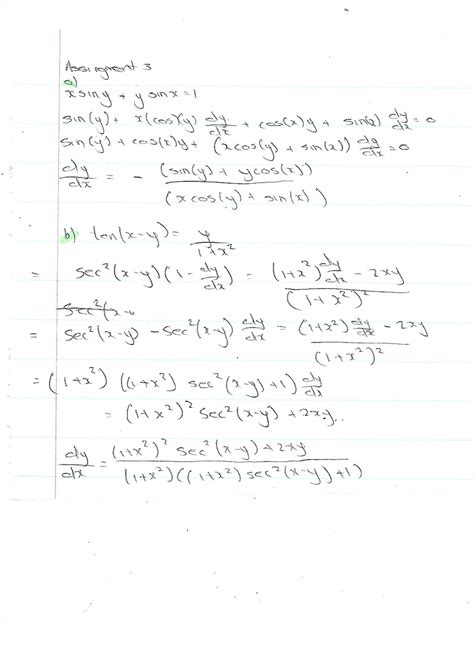 Assignment 3
a)
x sin y + y sin x = 1
sin(y) + x(cos)(y) dy/dx + cos(x)y + sin(x) dy/dx = 0
sin(y) + cos(x)y + (x cos(y) + sin(x)) dy/dx = 0
dy/dx = - (sin(y) + y cos(x)) / (x cos(y) + sin(x))
b) tan(x-y) = y / 1+x²
= sec²(x-y)(1 - dy/dx) = (1+x²) dy/dx - 2xy / (1+x²)²
sec²(x-y
= sec²(x-y) - sec²(x-y) dy/dx = (1+x²) dy/dx - 2xy / (1+x²)²
= (1+x²) ((1+x²) sec²(x-y) + 1) dy/dx
= (1+x²)² sec²(x-y) + 2xy..
dy/dx = (1+x²)² sec²(x-y) + 2xy / (1+x²)((1+x²) sec²(x-y) + 1)